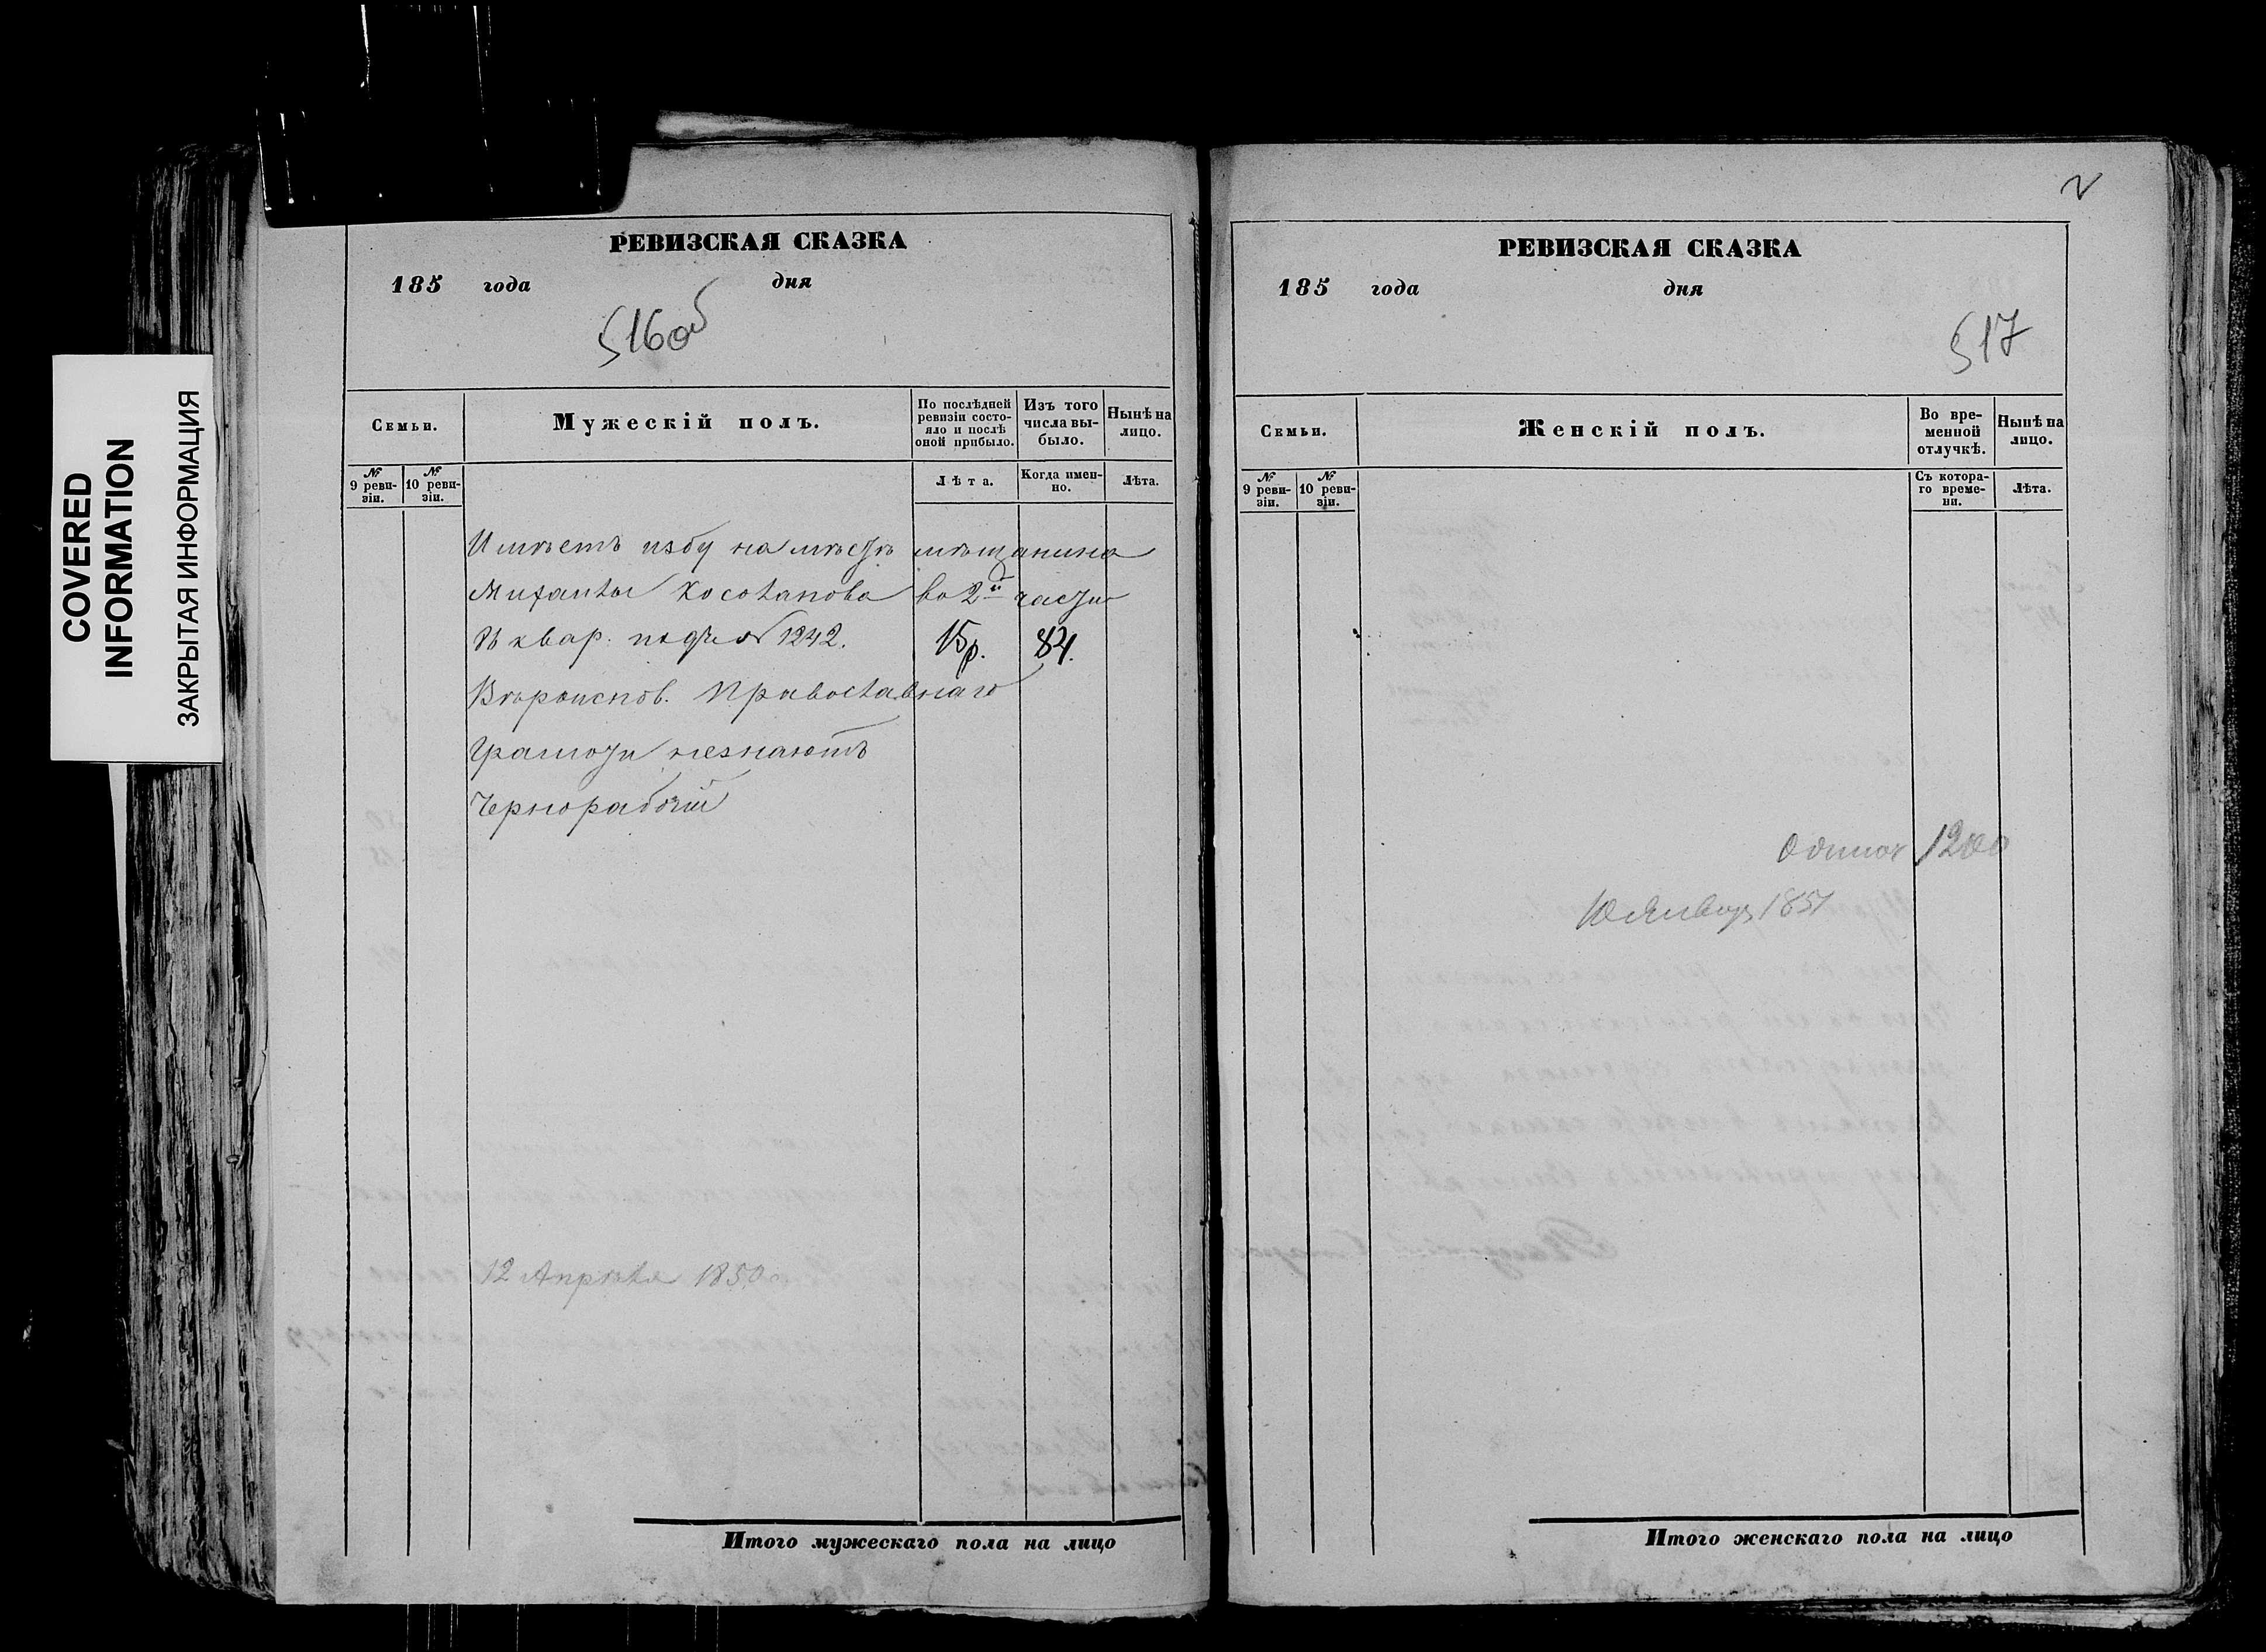 COVERED
INFORMATION
ЗАКРЫТАЯ ИНФОРМАЦИЯ
РЕВИЗСКАЯ СКАЗКА
185 года дня
516об
Семьи.
Мужескій полъ.
По послѣдней ревизіи состояло и послѣ оной прибыло.
Изъ того числа выбыло.
Нынѣ на лицо.
№ 9 ревизіи.
№ 10 ревизіи.
Лѣта.
Когда именно.
Лѣта.
Имѣетъ избу на мѣстѣ мѣщанина
Михайлы во 2й части
въ квар. подъ № 1242. 15р. 84.
Вѣроиспов. Православнаго
Грамоти незнаютъ
Чернорабочій
12 Апрѣля 1850
Итого мужескаго пола на лицо
2
РЕВИЗСКАЯ СКАЗКА
185 года дня
517
Семьи.
Женскій полъ.
Во временной отлучкѣ.
Нынѣ на лицо.
№ 9 ревизіи.
№ 10 ревизіи.
Съ котораго времени.
Лѣта.
Итого женскаго пола на лицо